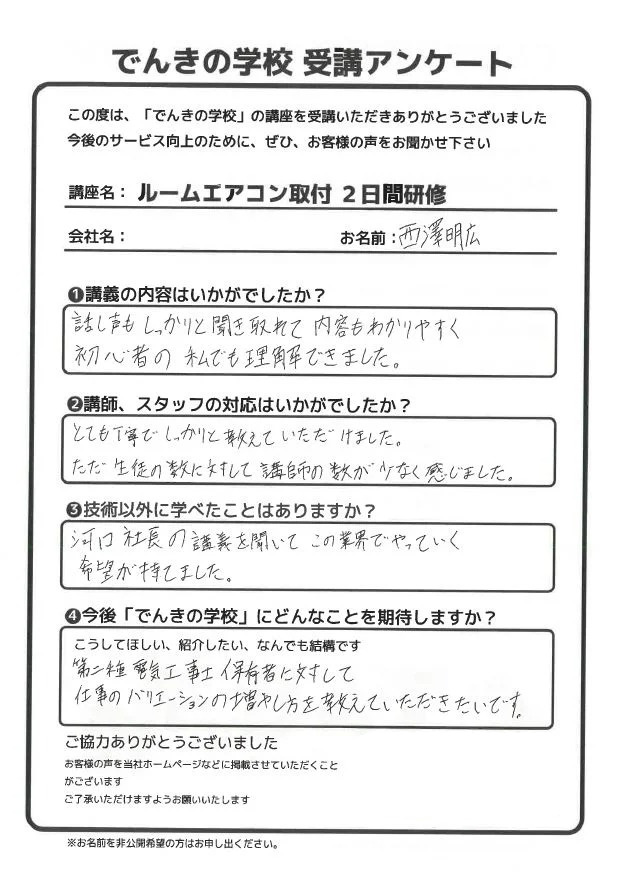 でんきの学校 受講アンケート
この度は、「でんきの学校」の講座を受講いただきありがとうございました
今後のサービス向上のために、ぜひ、お客様の声をお聞かせ下さい
講座名： ルームエアコン取付 2日間研修
会社名： お名前：西澤明広
❶講義の内容はいかがでしたか？
話し声もしっかりと聞き取れて内容もわかりやすく
初心者の私でも理解できました。
❷講師、スタッフの対応はいかがでしたか？
とても丁寧でしっかりと教えていただけました。
ただ生徒の数に対して講師の数が少なく感じました。
❸技術以外に学べたことはありますか？
河口社長の講義を聞いてこの業界でやっていく
希望が持てました。
❹今後「でんきの学校」にどんなことを期待しますか？
こうしてほしい、紹介したい、なんでも結構です
第二種電気工事士保有者に対して
仕事のバリエーションの増やし方を教えていただきたいです。
ご協力ありがとうございました
お客様の声を当社ホームページなどに掲載させていただくこと
がございます
ご了承いただけますようお願いいたします
※お名前を非公開希望の方はお申し出ください。